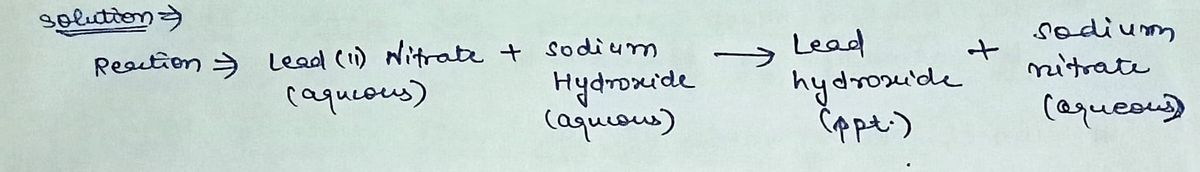 Solution ⇒
Reaction ⇒ Lead (II) Nitrate + Sodium → Lead + Sodium
(aqueous) Hydroxide hydroxide nitrate
(aqueous) (ppt.) (aqueous)